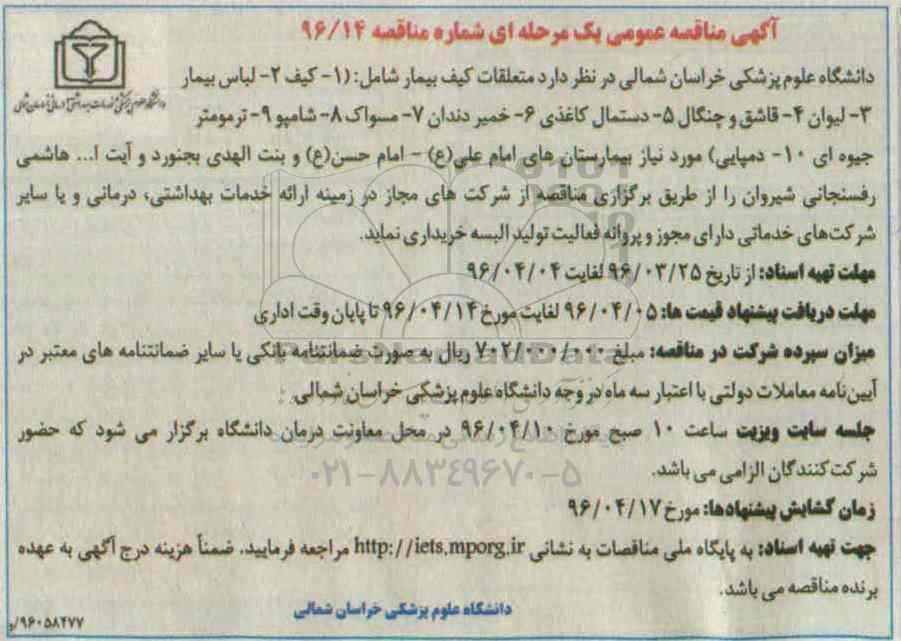 آگهی مناقصه عمومی یک مرحله ای شماره مناقصه ۹۶/۱۴
دانشگاه علوم پزشکی خراسان شمالی در نظر دارد متعلقات کیف بیمار شامل: (۱- کیف ۲- لباس بیمار
۳- لیوان ۴- قاشق و چنگال ۵- دستمال کاغذی ۶- خمیر دندان ۷- مسواک ۸- شامپو ۹- ترمومتر
جیوه ای ۱۰- دمپایی) مورد نیاز بیمارستان های امام علی(ع) – امام حسن(ع) و بنت الهدی بجنورد و آیت ا... هاشمی
رفسنجانی شیروان را از طریق برگزاری مناقصه از شرکت های مجاز در زمینه ارائه خدمات بهداشتی، درمانی و یا سایر
شرکت‌های خدماتی دارای مجوز و پروانه فعالیت تولید البسه خریداری نماید.
مهلت تهیه اسناد: از تاریخ ۹۶/۰۳/۲۵ لغایت ۹۶/۰۴/۰۴
مهلت دریافت پیشنهاد قیمت ها: ۹۶/۰۴/۰۵ لغایت مورخ ۹۶/۰۴/۱۴ تا پایان وقت اداری
میزان سپرده شرکت در مناقصه: مبلغ ۷۰۲/۰۰۰/۰۰۰ ریال به صورت ضمانتنامه بانکی یا سایر ضمانتنامه های معتبر در
آیین‌نامه معاملات دولتی با اعتبار سه ماه در وجه دانشگاه علوم پزشکی خراسان شمالی
جلسه سایت ویزیت ساعت ۱۰ صبح مورخ ۹۶/۰۴/۱۰ در محل معاونت درمان دانشگاه برگزار می شود که حضور
شرکت‌کنندگان الزامی می باشد.
۰۲۱-۸۸۳۴۹۶۷۰-۵
زمان گشایش پیشنهادها: مورخ ۹۶/۰۴/۱۷
جهت تهیه اسناد: به پایگاه ملی مناقصات به نشانی http://iets.mporg.ir مراجعه فرمایید. ضمناً هزینه درج آگهی به عهده
برنده مناقصه می باشد.
دانشگاه علوم پزشکی خراسان شمالی
۹۶۰۵۸۴۷۷/و
ParsNamadData